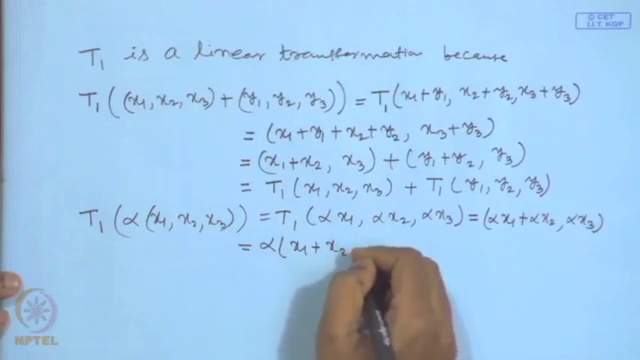 © CET
I.I.T. KGP
T₁ is a linear transformation because
T₁((x₁, x₂, x₃) + (y₁, y₂, y₃)) = T₁(x₁+y₁, x₂+y₂, x₃+y₃)
= (x₁+y₁+x₂+y₂, x₃+y₃)
= (x₁+x₂, x₃) + (y₁+y₂, y₃)
= T₁(x₁, x₂, x₃) + T₁(y₁, y₂, y₃)
T₁(α(x₁, x₂, x₃)) = T₁(αx₁, αx₂, αx₃) = (αx₁+αx₂, αx₃)
= α(x₁+x₂
NPTEL